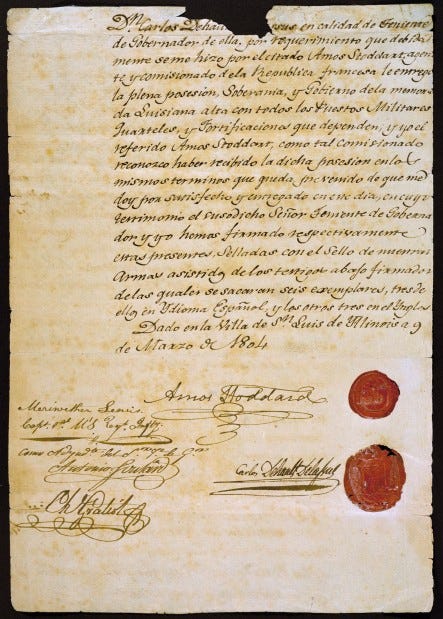 Dn. Carlos Dehault en calidad de Teniente
de Gobernador de ella, por requerimiento que devida
mente seme hizo por el citado Amos Stoddart agen
te y comisionado dela Republica francesa le entrego
la plena posesion, Soberania, y Govierno dela
da Luisiana alta con todos los Puestos Militares
Quarteles, y Fortificaciones que dependen; y yo el
referido Amos Stoddart, como tal comisionado
reconozco haber recibido la dicha posesion en los
mismos terminos que queda prevenido de que me
doy por satisfecho y entregado en este dia, en cuyo
testimonio el susodicho Señor Teniente de Goberna
dor y yo hemos firmado respectivamente
estas presentes, Selladas con el Sello de nuestras
Armas asistidos de los testigos abajo firmados
delas quales se sacaran seis exemplares, tres de
ellos en Ydioma Español y los otros tres en el Ingles
Dado en la Villa de Sn. Luis de Ylinois a 9
de Marzo de 1804
Amos Stoddard
Meriwether Lewis
Capt. 1st. U S Regt. Infty.
Carlos Dehault Delassus
Como
Antonio Soulard
Ch. Gratiot